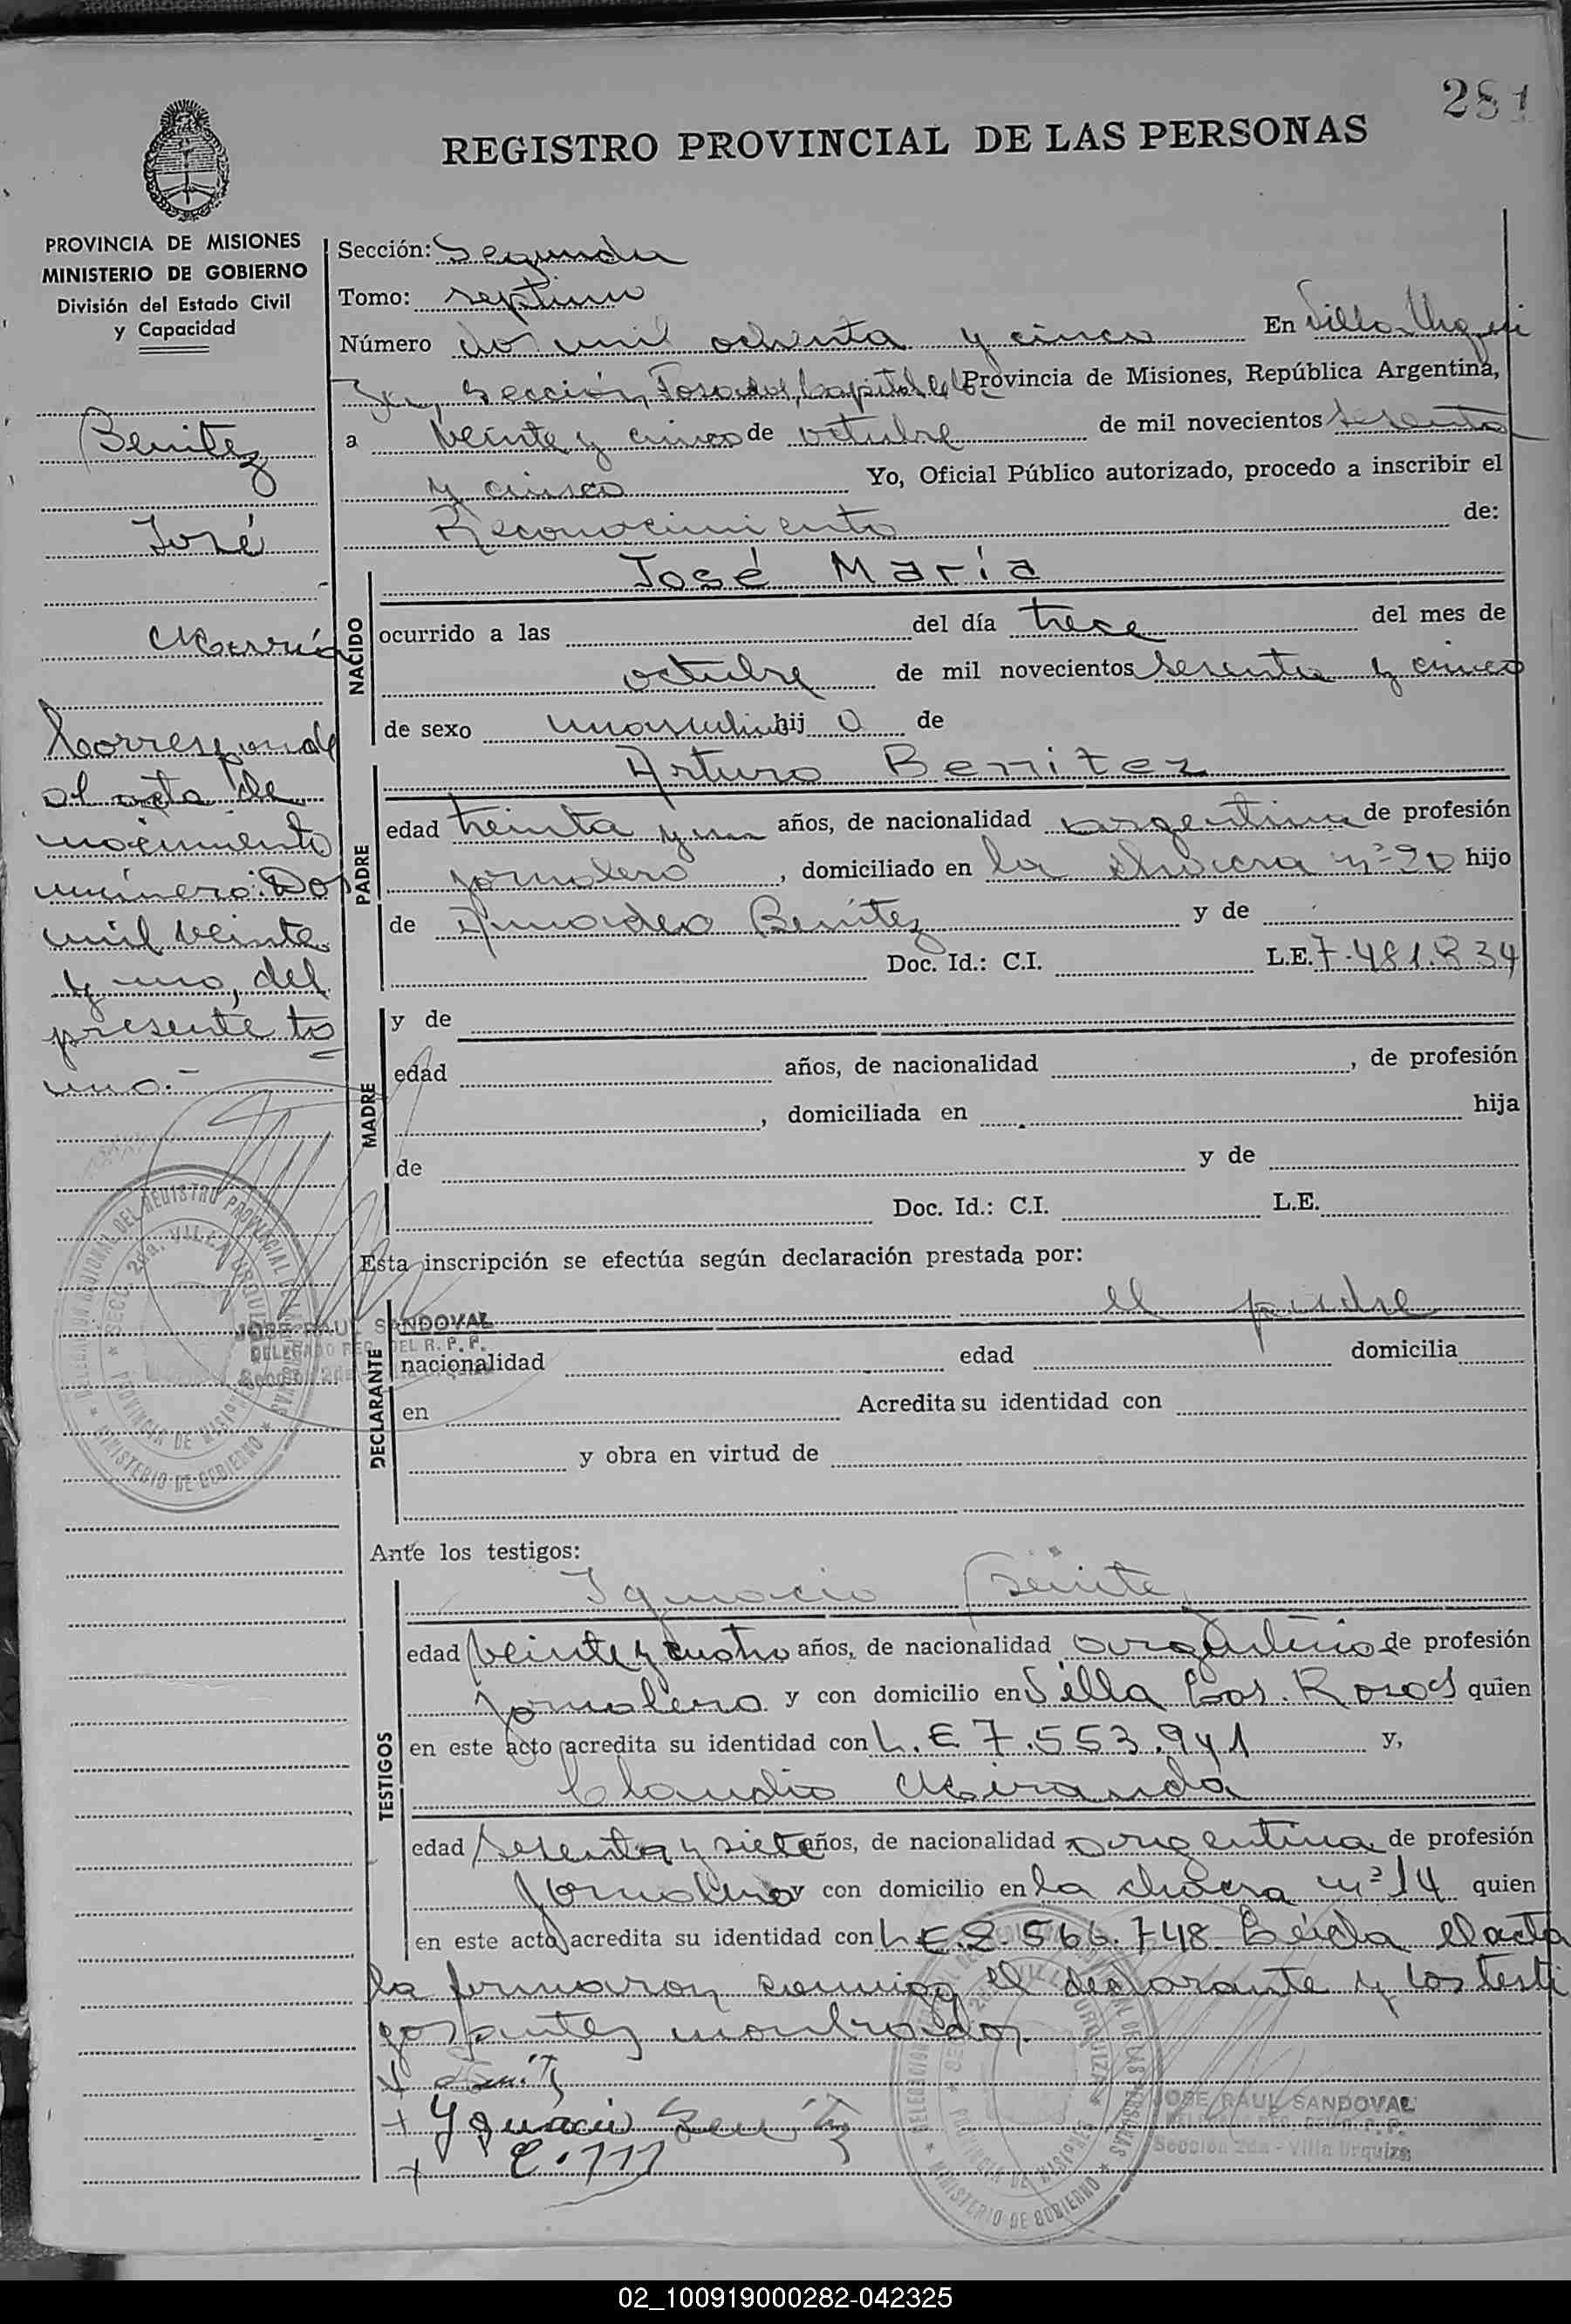 281
REGISTRO PROVINCIAL DE LAS PERSONAS
PROVINCIA DE MISIONES
MINISTERIO DE GOBIERNO
División del Estado Civil
y Capacidad
Benitez
José
María
Corresponde
al acta de
nacimiento
número: Dos
mil veinte
y uno, del
presente to
mo.-
Sección: Segunda
Tomo: septimo
Número dos mil ochenta y cinco En Villa Urqui
za, Sección, Posadas, Capital de la Provincia de Misiones, República Argentina,
a veinte y cinco de octubre de mil novecientos sesenta
y cinco Yo, Oficial Público autorizado, procedo a inscribir el
Reconocimiento de:
NACIDO
José María
ocurrido a las del día trece del mes de
octubre de mil novecientos sesenta y cinco
de sexo masculino hijo de
PADRE
Arturo Benitez
edad treinta y un años, de nacionalidad argentina de profesión
jornalero, domiciliado en la chacra nº 20 hijo
de Amadeo Benítez y de
Doc. Id.: C.I. L.E. 7.481.834
MADRE
y de
edad años, de nacionalidad , de profesión
, domiciliada en hija
de y de
Doc. Id.: C.I. L.E.
Esta inscripción se efectúa según declaración prestada por:
DECLARANTE
el padre
nacionalidad edad domicilia
en Acredita su identidad con
y obra en virtud de
DELEGACION REGIONAL DEL REGISTRO PROVINCIAL DE LAS PERSONAS
SECC. 2da. VILLA URQUIZA
PROVINCIA DE MISIONES
MINISTERIO DE GOBIERNO
JOSE RAUL SANDOVAL
DELEGADO REG. DEL R. P. P.
Sección 2da - Villa Urquiza
Ante los testigos:
TESTIGOS
Ignacio Benite
edad veinte y cuatro años, de nacionalidad argentino de profesión
jornalero y con domicilio en Villa Las Rosas quien
en este acto acredita su identidad con L.E 7.553.941 y,
Claudio Miranda
edad sesenta y siete años, de nacionalidad argentina de profesión
jornalero y con domicilio en la chacra nº 14 quien
en este acto acredita su identidad con L.E. 2.566.748 Leída el acta
la firmaron conmigo el declarante y los testi
gos antes nombrados.
Ygnacio Benitez
C. M
DELEGACION REGIONAL DEL REGISTRO PROVINCIAL DE LAS PERSONAS
SECC. 2da. VILLA URQUIZA
PROVINCIA DE MISIONES
MINISTERIO DE GOBIERNO
JOSE RAUL SANDOVAL
DELEGADO REG. DEL R. P. P.
Sección 2da - Villa Urquiza
02_100919000282-042325